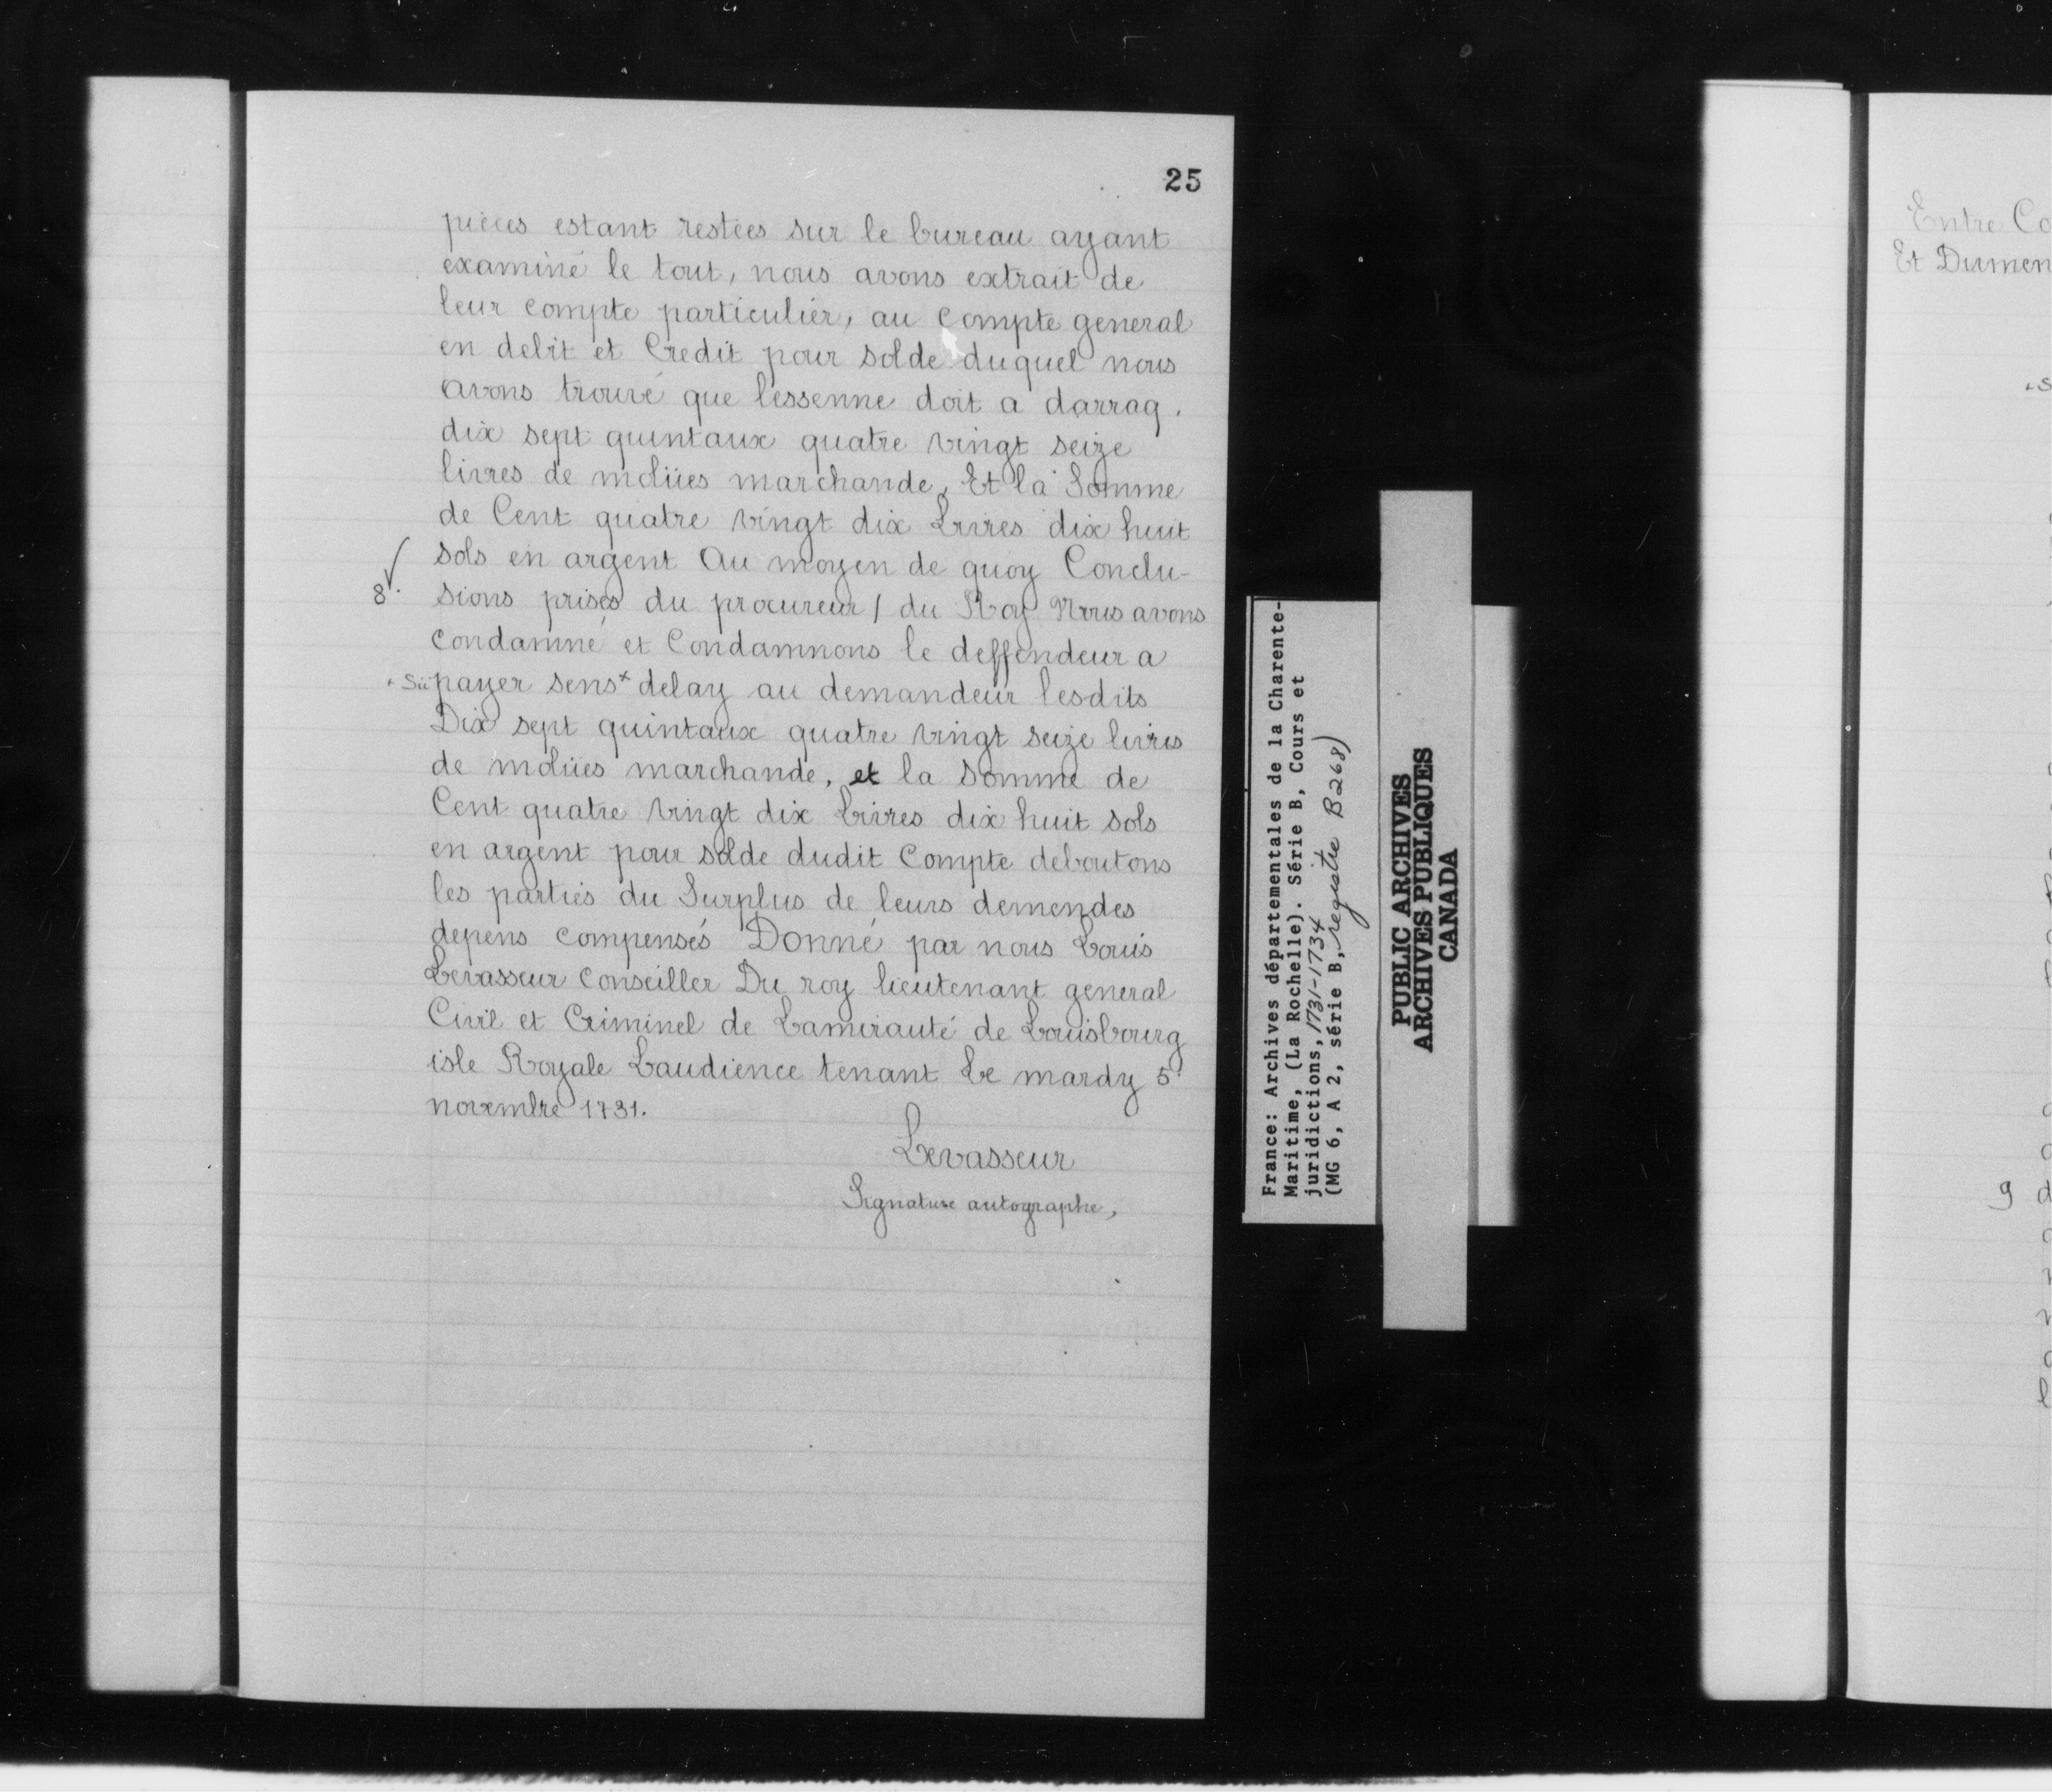 25
pièces estant restées sur le bureau ayant
examiné le tout, nous avons extrait de
leur compte particulier, au compte general
en debit et Credit pour solde duquel nous
avons trouvé que lessenne doit a darraq.
dix sept quintaux quatre vingt seize
livres de molües marchande, Et la Somme
de Cent quatre vingt dix Livres dix huit
sols en argent au moyen de quoy Conclu-
8. sions prises du procureur / du Roy Nous avons
condamné et Condamnons le deffendeur a
payer sens x delay au demandeur lesdits
Dix sept quintaux quatre vingt seize livres
de molües marchande, et la somme de
Cent quatre vingt dix Livres dix huit sols
en argent pour solde dudit Compte deboutons
les parties du Surplus de leurs demendes
depens compensés Donné par nous Louis
Levasseur Conseiller Du roy lieutenant general
Civil et Criminel de Lamirauté de Louisbourg
isle Royale Laudience tenant Le mardy 5.
novembre 1731.
Levasseur
Signature autographe,
France: Archives départementales de la Charente-
Maritime, (La Rochelle). Série B, Cours et
juridictions, 1731-1734
(MG 6, A 2, série B, registre B268)
PUBLIC ARCHIVES
ARCHIVES PUBLIQUES
CANADA
Entre Co
Et Dumen
9 d